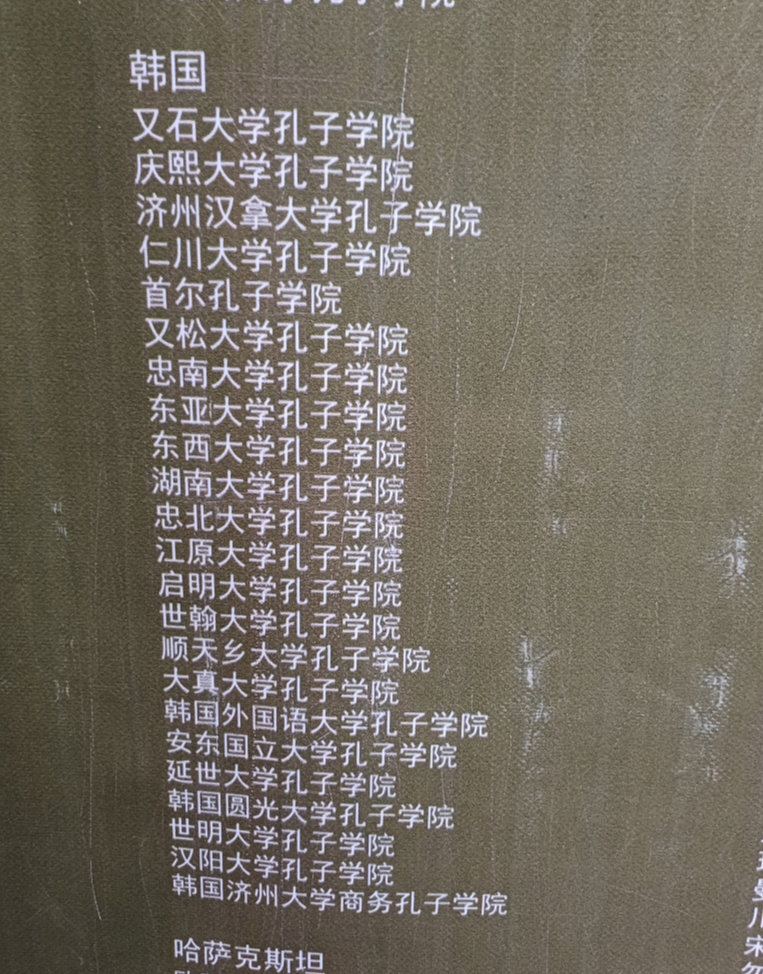 孔子学院
韩国
又石大学孔子学院
庆熙大学孔子学院
济州汉拿大学孔子学院
仁川大学孔子学院
首尔孔子学院
又松大学孔子学院
忠南大学孔子学院
东亚大学孔子学院
东西大学孔子学院
湖南大学孔子学院
忠北大学孔子学院
江原大学孔子学院
启明大学孔子学院
世翰大学孔子学院
顺天乡大学孔子学院
大真大学孔子学院
韩国外国语大学孔子学院
安东国立大学孔子学院
延世大学孔子学院
韩国圆光大学孔子学院
世明大学孔子学院
汉阳大学孔子学院
韩国济州大学商务孔子学院
哈萨克斯坦